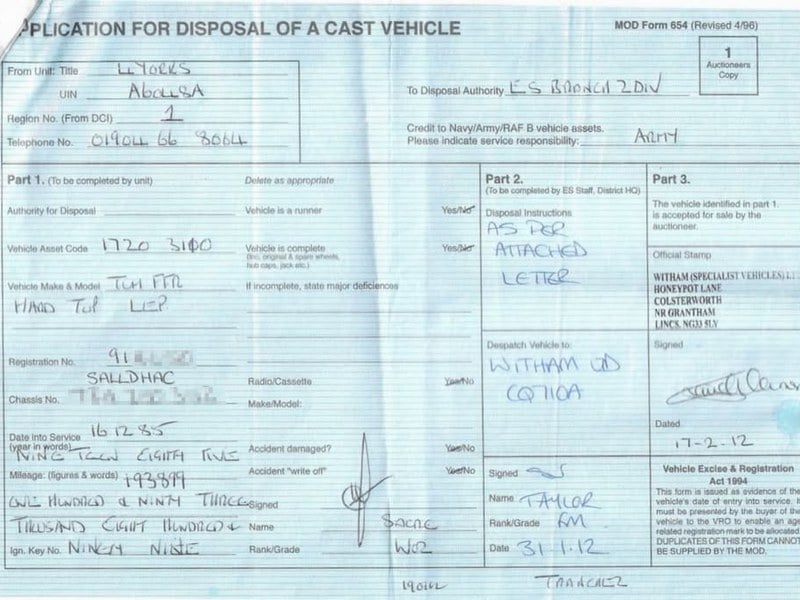 APPLICATION FOR DISPOSAL OF A CAST VEHICLE
MOD Form 654 (Revised 4/96)
1
Auctioneers
Copy
From Unit: Title LLYORKS
UIN
Region No. (From DCI) 1
Telephone No. 01904 66 8064
To Disposal Authority ES BRANCH 2DIV
Credit to Navy/Army/RAF B vehicle assets.
Please indicate service responsibility: ARMY
Part 1. (To be completed by unit)
Delete as appropriate
Authority for Disposal
Vehicle is a runner Yes/No
Vehicle Asset Code 1720 3100
Vehicle is complete Yes/No
(inc. original & spare wheels,
hub caps, jack etc.)
Vehicle Make & Model TUM FFR
HARD TOP LEP
If incomplete, state major deficiences
Registration No. 91
SALLDHAC
Chassis No.
Radio/Cassette Yes/No
Make/Model:
Date into Service 16 12 85
(year in words) NINE TEEN EIGHTY FIVE
Accident damaged? Yes/No
Mileage: (figures & words) 193899
Accident "write off" Yes/No
ONE HUNDRED & NINTY THREE
Signed
THOUSAND EIGHT HUNDRED &
Name
Ign. Key No. NINETY NINE
Rank/Grade WO2
Part 2.
(To be completed by ES Staff, District HQ)
Disposal Instructions
AS PER
ATTACHED
LETTER
Despatch Vehicle to:
WITHAM LTD
CQ710A
Signed
Name TAYLOR
Rank/Grade
Date 31.1.12
Part 3.
The vehicle identified in part 1.
is accepted for sale by the
auctioneer.
Official Stamp
WITHAM (SPECIALIST VEHICLES)
HONEYPOT LANE
COLSTERWORTH
NR GRANTHAM
LINCS. NG33 5LY
Signed
Dated
17-2-12
Vehicle Excise & Registration
Act 1994
This form is issued as evidence of the
vehicle's date of entry into service. It
must be presented by the buyer of the
vehicle to the VRO to enable an age
related registration mark to be allocated.
DUPLICATES OF THIS FORM CANNOT
BE SUPPLIED BY THE MOD.